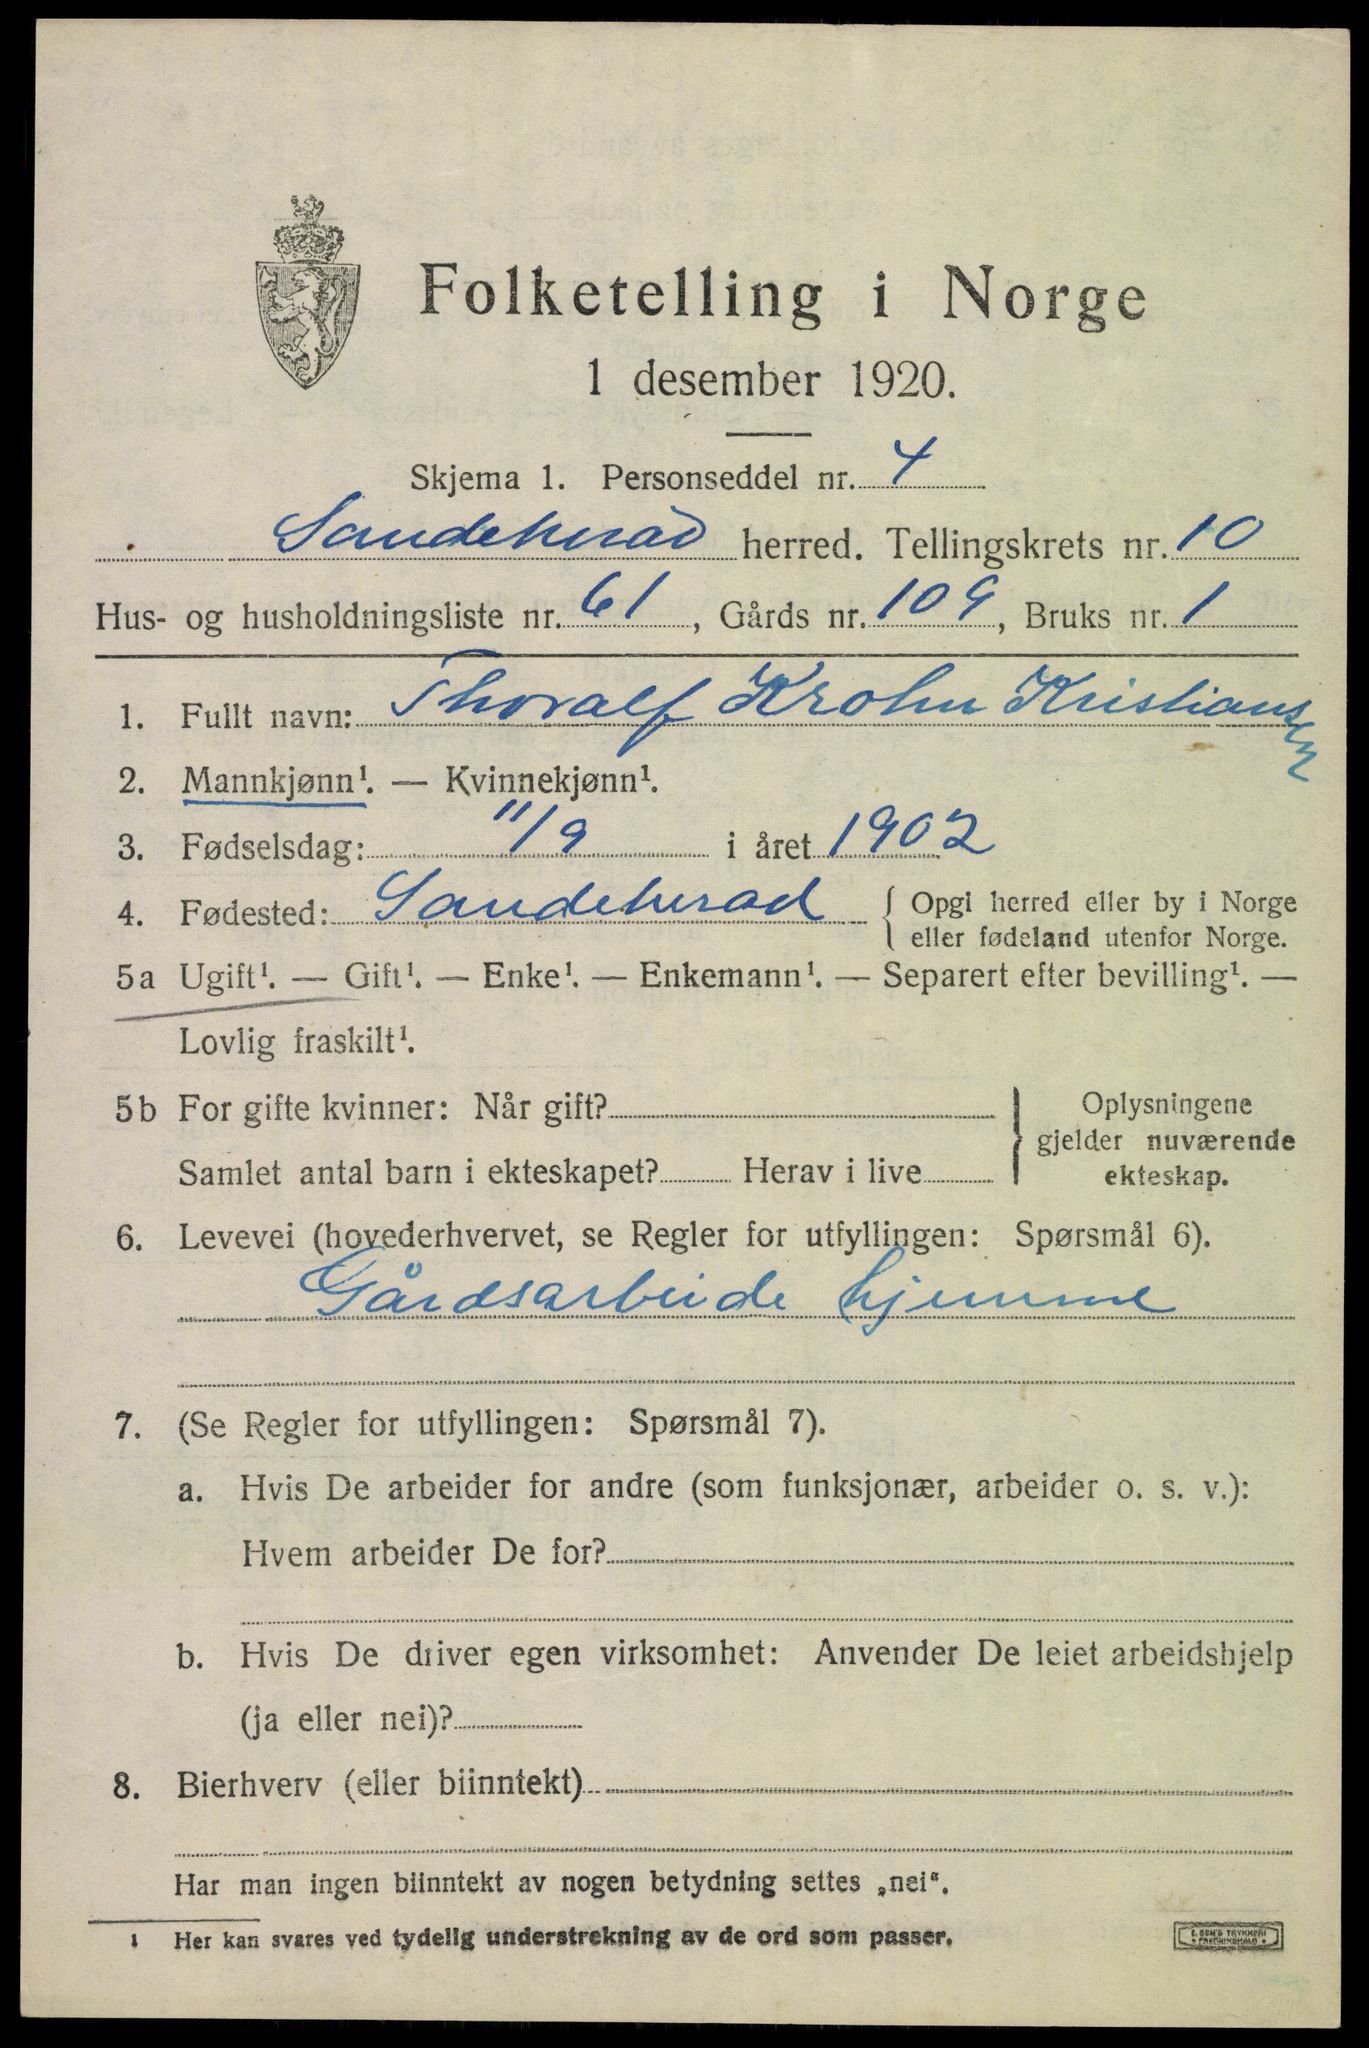 Folketelling i Norge
1 desember 1920.
Skjema 1. Personseddel nr. 4
Sandeherad herred. Tellingskrets nr. 10
Hus- og husholdningsliste nr. 61, Gårds nr. 109, Bruks nr. 1
1. Fullt navn: Thoralf Krohn Kristiansen
2. Mannkjønn¹. — Kvinnekjønn¹.
3. Fødselsdag: 11/9 i året 1902
4. Fødested: Sandeherad { Opgi herred eller by i Norge
eller fødeland utenfor Norge.
5a Ugift¹. — Gift¹. — Enke¹. — Enkemann¹. — Separert efter bevilling¹. —
Lovlig fraskilt¹.
5b For gifte kvinner: Når gift?
Samlet antal barn i ekteskapet? Herav i live
} Oplysningene
gjelder nuværende
ekteskap.
6. Levevei (hovederhvervet, se Regler for utfyllingen: Spørsmål 6).
Gårdsarbeide hjemme
7. (Se Regler for utfyllingen: Spørsmål 7).
a. Hvis De arbeider for andre (som funksjonær, arbeider o. s. v.):
Hvem arbeider De for?
b. Hvis De driver egen virksomhet: Anvender De leiet arbeidshjelp
(ja eller nei)?
8. Bierhverv (eller biinntekt)
Har man ingen biinntekt av nogen betydning settes „nei“.
1 Her kan svares ved tydelig understrekning av de ord som passer.
E. SEM'S TRYKKERI
FREDRIKSHALD